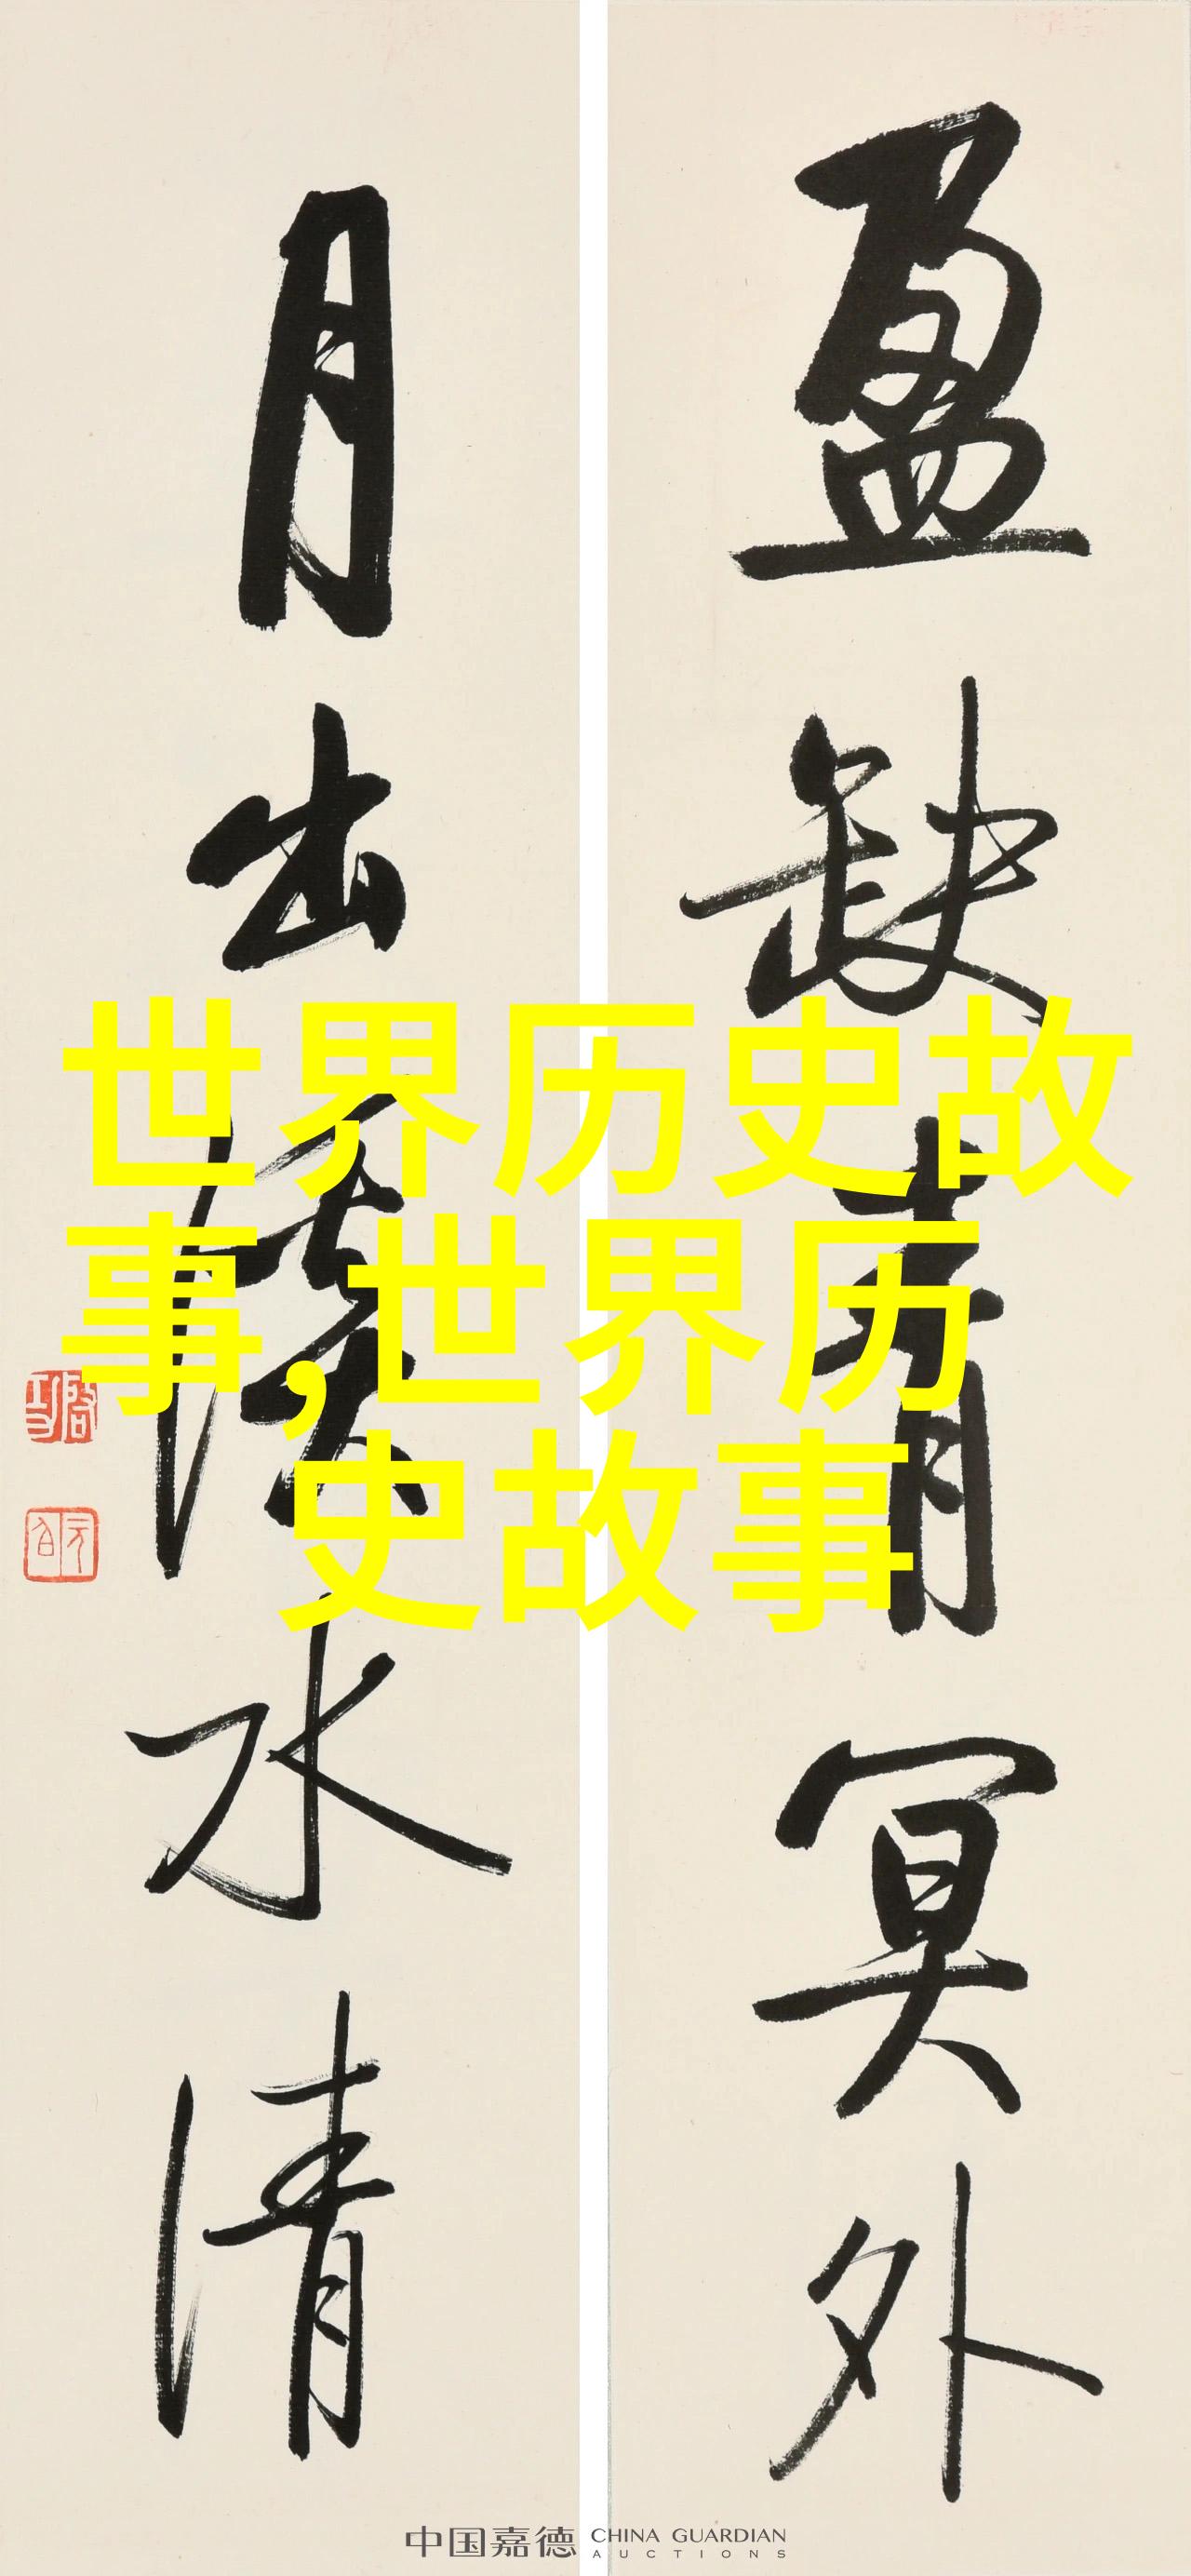 盈缺青冥外
月出溪水清
启功
元白
世界历史故
事,世界历
史故事
中国嘉德 CHINA GUARDIAN
AUCTIONS